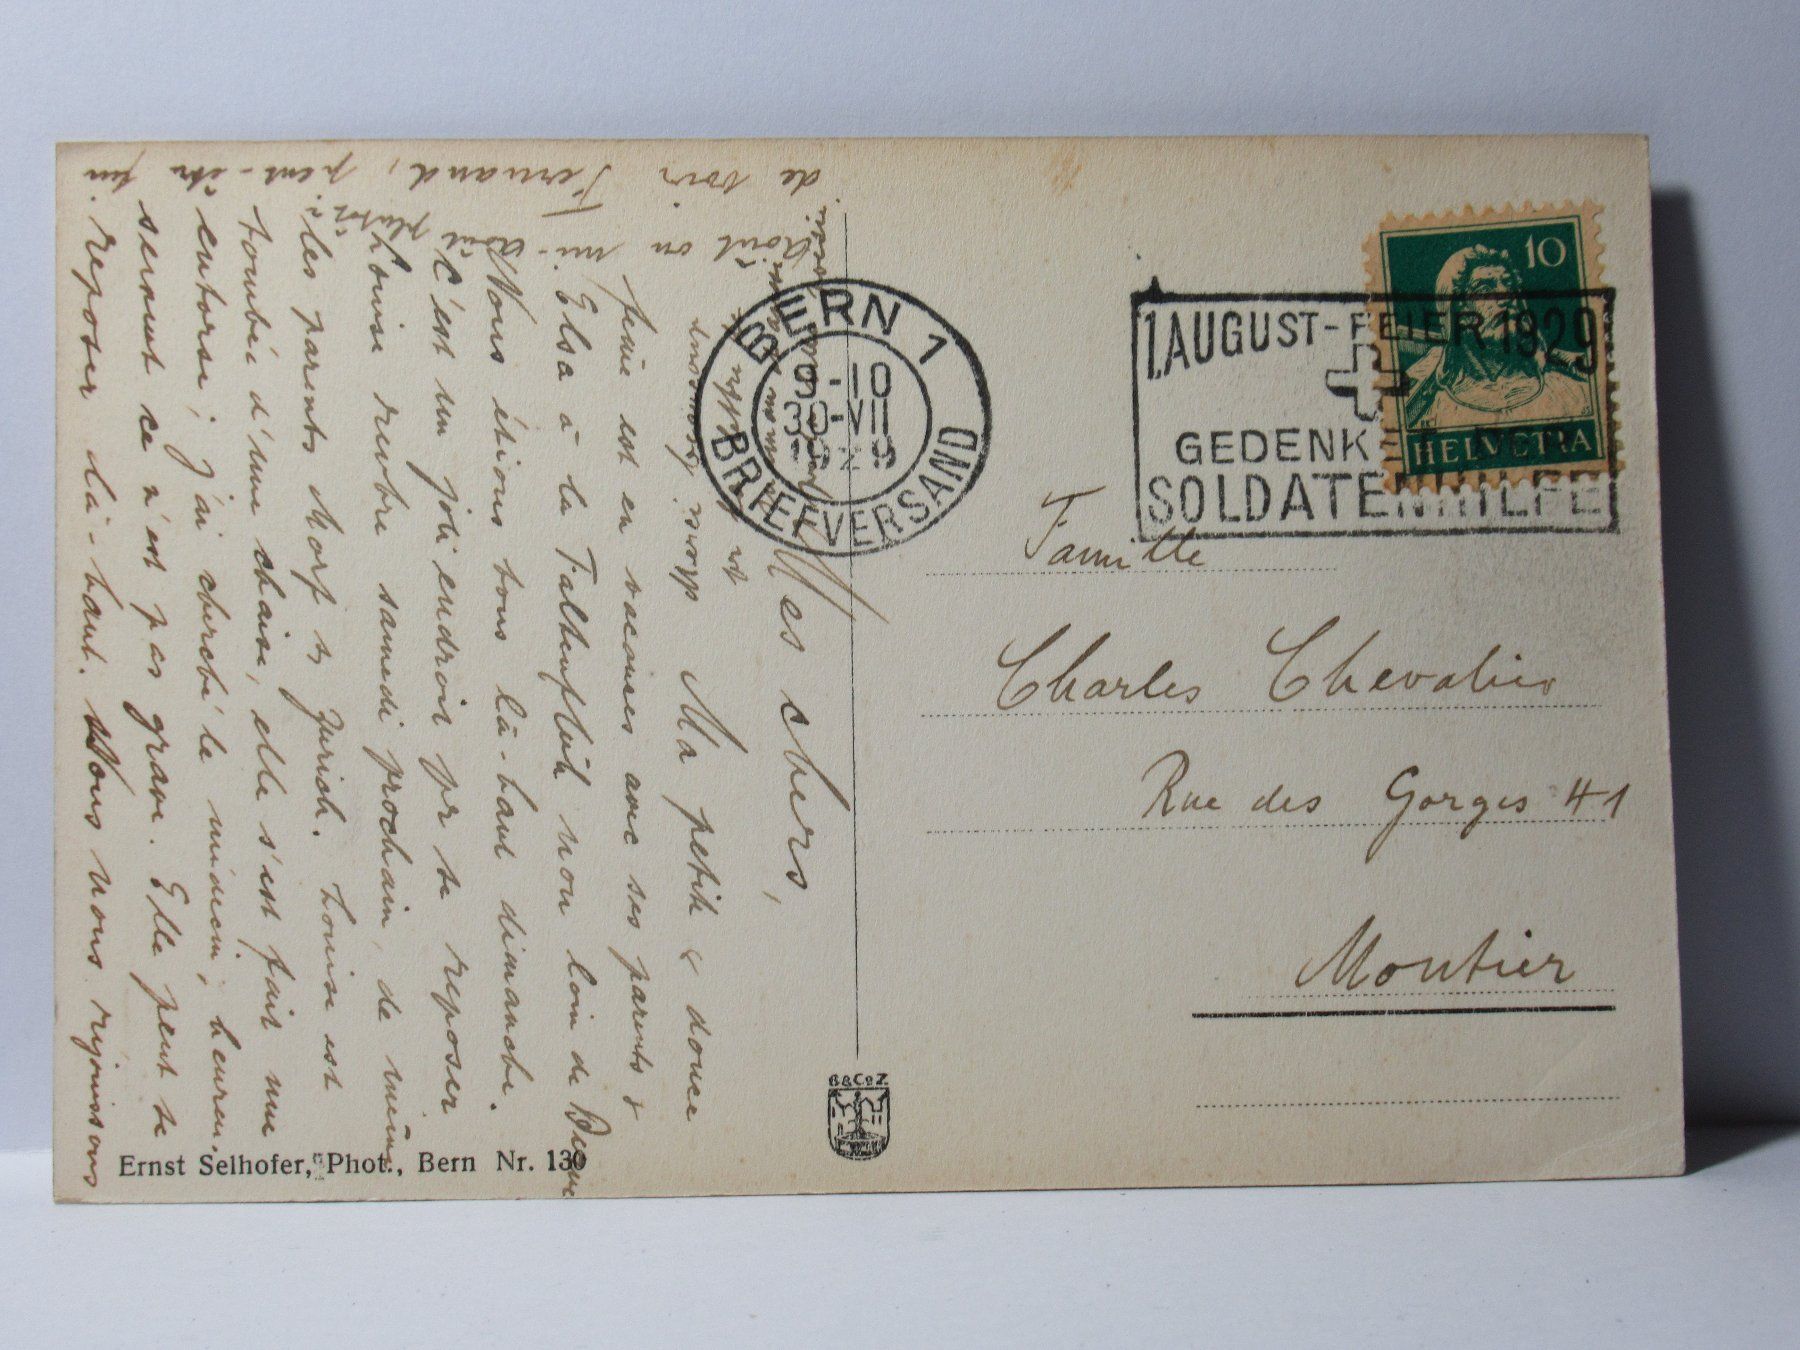 BERN 1
9-10
30-VII
1929
BRIEFVERSAND
1. AUGUST-FEIER 1929
GEDENKET DER
SOLDATENHILFE
10
HELVETIA
Famille
Charles Chevalier
Rue des Gorges 41
Moutier
Mes chers,
Ma petite & douce
fine est en vacances avec ses parents &
Elsa à la Faltenfluh non loin de Berne
Nous étions tous là-haut dimanche.
C'est un joli endroit pr se reposer
Louise rentre samedi prochain, de même
les parents Morf de Zurich. Louise est
tombée d'une chaise, elle s'est fait une
entorse; j'ai cherché le médecin, heureus.
sement ce n'est pas grave. Elle peut se
reposer là-haut. Nous nous réjouissons
de voir Fernand, peut-être fin
août ou mi-août plutôt.
B&CoZ
Ernst Selhofer, Phot., Bern Nr. 139